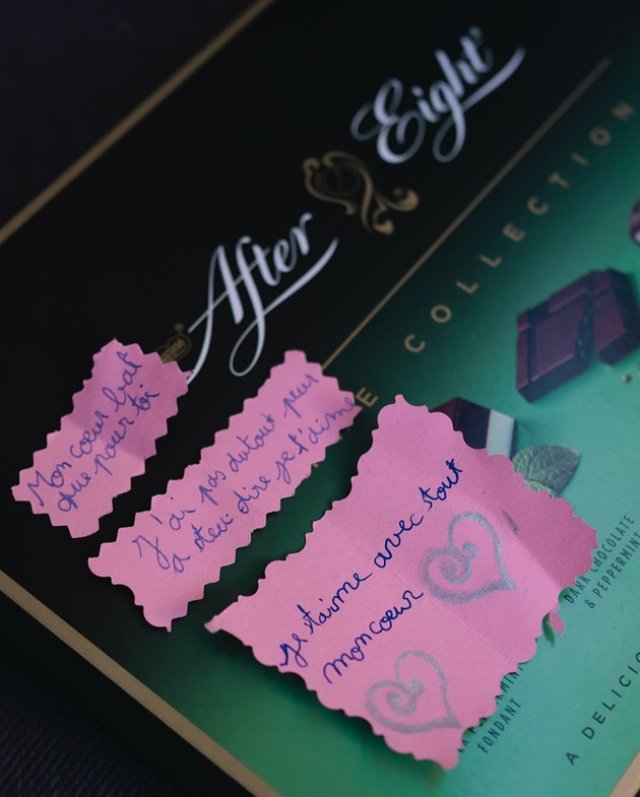 After Eight
COLLECTION
Mon coeur bat
que pour toi
J'ai pas dutout peur
a dire je t'aime
Je t'aime avec tout
mon coeur
DARK CHOCOLATE
& PEPPERMINT
FONDANT
A DELICI